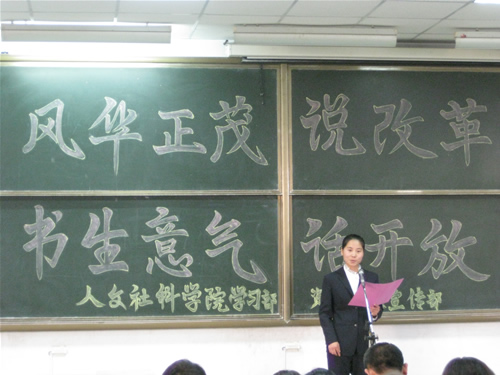 风华正茂 说改革
书生意气 话开放
人文社科学院学习部 宣传部